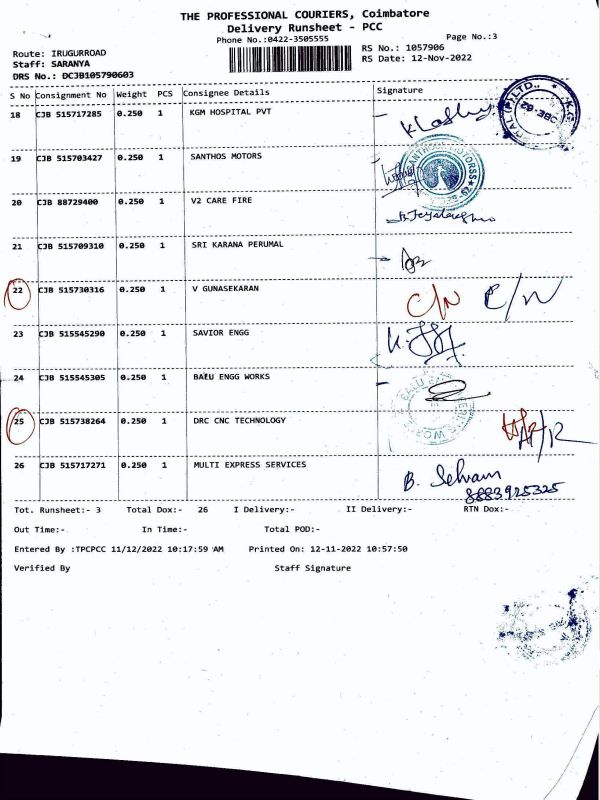 THE PROFESSIONAL COURIERS, Coimbatore
Delivery Runsheet - PCC
Phone No.:0422-3505555
Page No.:3
Route: IRUGURROAD
RS No.: 1057906
Staff: SARANYA
RS Date: 12-Nov-2022
DRS No.: DCJB105790603
S No Consignment No Weight PCS Consignee Details Signature
18 CJB 515717285 0.250 1 KGM HOSPITAL PVT
19 CJB 515703427 0.250 1 SANTHOS MOTORS
20 CJB 88729400 0.250 1 V2 CARE FIRE
21 CJB 515709310 0.250 1 SRI KARANA PERUMAL
22 CJB 515730316 0.250 1 V GUNASEKARAN C/N
23 CJB 515545290 0.250 1 SAVIOR ENGG
24 CJB 515545305 0.250 1 BALU ENGG WORKS
25 CJB 515738264 0.250 1 DRC CNC TECHNOLOGY
26 CJB 515717271 0.250 1 MULTI EXPRESS SERVICES B. Selvam
8883925325
Tot. Runsheet:- 3 Total Dox:- 26 I Delivery:- II Delivery:- RTN Dox:-
Out Time:- In Time:- Total POD:-
Entered By :TPCPCC 11/12/2022 10:17:59 AM Printed On: 12-11-2022 10:57:50
Verified By Staff Signature